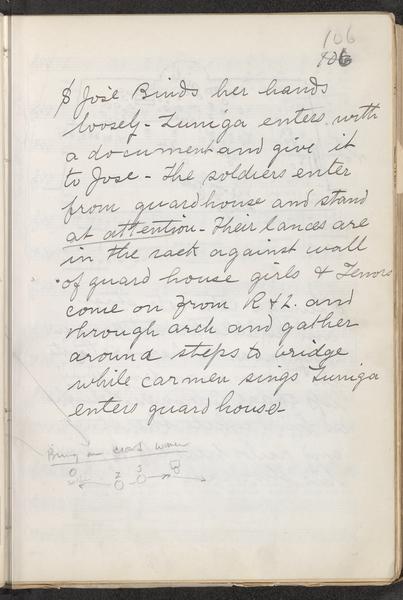 106
106
$ José Binds her hands
loosely - Zuniga enters with
a document and give it
to Jose - The soldiers enter
from guardhouse and stand
at attention - Their lances are
in the rack against wall
of guard house girls & Tenors
come on from R & L. and
through arch and gather
around steps to bridge
while carmen sings Zuniga
enters guard house
Bring on
2 3